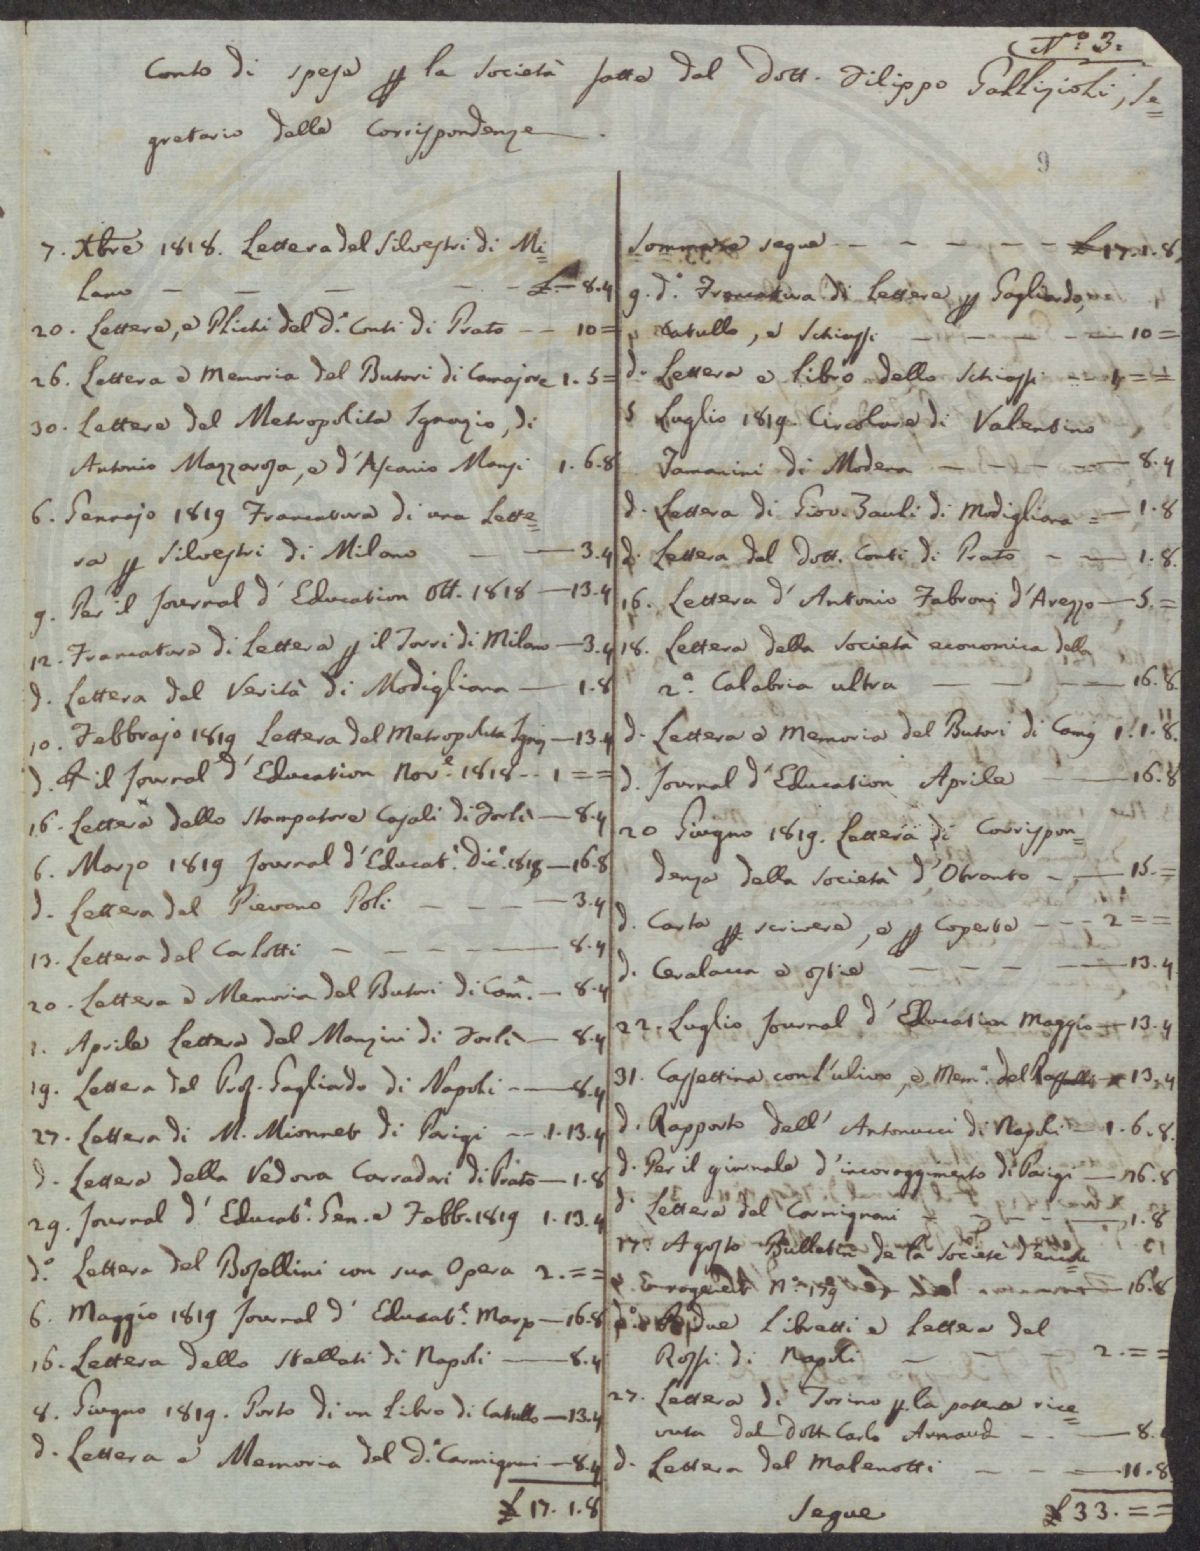 N.º 3.
Conto di spese p la Società fatte dal Dott. Filippo Gallizioli, Se=
gretario delle Corrispondenze.
9
7. Xbre 1818. Lettera del Silvestri di Mi=
lano — — — — £ — 8.4
20. Lettere, e Plichi del D.r Conti di Prato — — 10 =
26. Lettera e Memoria del Butori di Camajore 1. 5 =
30. Lettere del Metropolita Ignazio, di
Antonio Mazzarosa, e d'Ascanio Mansi 1. 6. 8
6. Gennajo 1819 Francatura di una Lette=
ra p Silvestri di Milano — — 3.4
9. Per il Journal d'Education Ott. 1818 — 13.4
12. Francatura di Lettera p il Torri di Milano — 3.4
d. Lettera del Verità di Modigliana — 1.8
10. Febbrajo 1819 Lettera del Metropolita — 13.4
d. p il Journal d'Education Nov.e 1818 - - 1 = =
16. Lettera dello Stampatore Casali di Forlì — 8.4
6. Marzo 1819 Journal d'Educat.n Dic.e 1818 — 16.8
d. Lettera del Pievano Poli — — — 3.4
13. Lettera del Carlotti — — — 8.4
20. Lettera e Memoria del Butori di Cam.e — 8.4
1. Aprile Lettera del Manzini di Forlì — 8.4
19. Lettera del Prof. Gagliardo di Napoli — 8.4
27. Lettera di M. Mionnet di Parigi - - 1. 13.4
d. Lettera della Vedova Corradori di Prato — 1.8
29. Journal d'Educat.n Gen. e Febb. 1819 1. 13.4
d.º Lettera del Bosellini con sua Opera 2. = =
6. Maggio 1819 Journal d'Educat.e Marzo — 16.8
16. Lettera dello Stellati di Napoli — 8.4
8. Giugno 1819. Porto di un Libro di Catullo — 13.4
d. Lettera e Memoria del D.r Carmignani — 8.4
£ 17. 1. 8
Somma e segue — — — — £ 17. 1. 8
9. d.º Francatura di Lettere p Gagliardo,
Catullo, e Schiassi — — — 10 =
d. Lettera e Libro dello Schiassi - - 1 = =
5 Luglio 1819. Circolare di Valentino
Tamanini di Modena — — — 8.4
d. Lettera di Giov. Zauli di Modigliana — 1.8
d. Lettera del Dott. Conti di Prato — — 1.8.
16. Lettera d'Antonio Fabroni d'Arezzo — 5. =
18. Lettera della Società economica della
2.ª Calabria ultra — — — 16.8
d. Lettera e Memoria del Butori di Camaj 1. 1. 8.
d. Journal d'Education Aprile — 16.8
20 Giugno 1819. Lettera di Corrispon=
denza della Società d'Otranto — 15. =
d. Carta p scrivere, e p Coperte - - - 2 = =
d. Ceralacca e ostie — — — 13.4
22. Luglio Journal d'Education Maggio — 13.4
31. Cassettina con l'ulivo, e Mem.e del — 13.4
d. Rapporto dell'Antonucci di Napoli — 1. 6. 8.
d. Per il giornale d'incoraggimento di Parigi — 16.8
d. Lettera del Carmignani — — — 1.8
17. Agosto Bulletin de la Société d'encou=
ragement N.º — 16.8
d.º due Libretti e Lettera del
Rossi di Napoli — — — 2. = =
27. Lettera di Torino p la patente rice=
vuta dal Dott. Carlo Arnaud — — 8.
d. Lettera del Malenotti — — — 11.8
Segue £ 33. = =